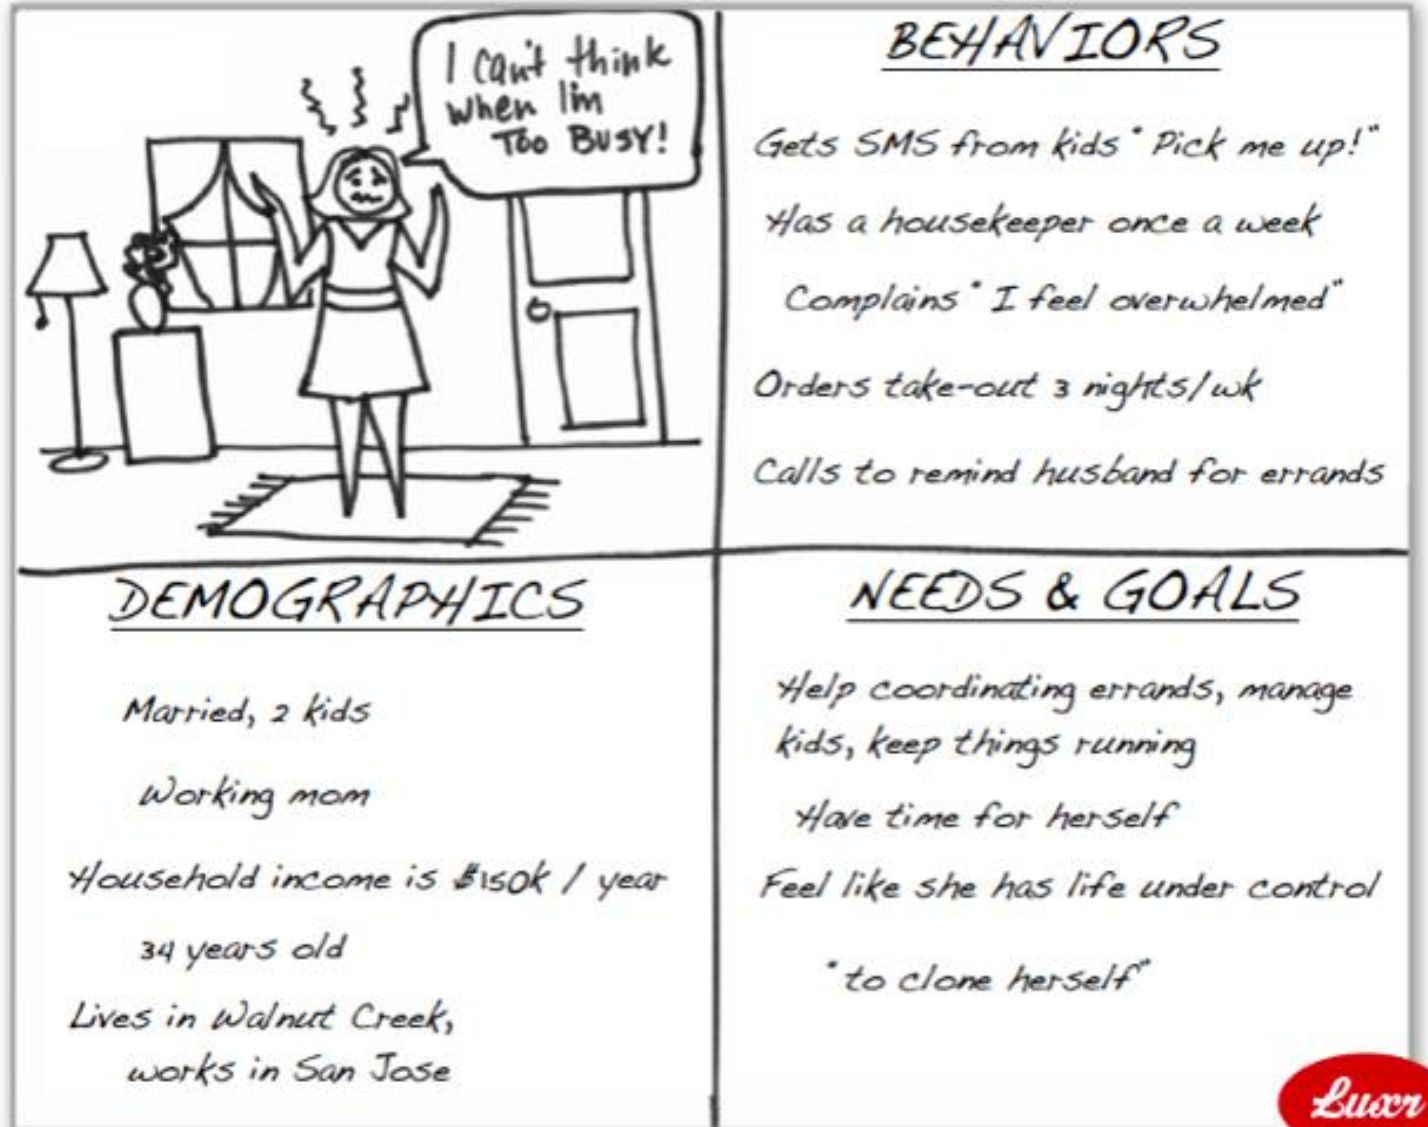 I can't think
when I'm
Too BUSY!
BEHAVIORS
Gets SMS from kids "Pick me up!"
Has a housekeeper once a week
Complains "I feel overwhelmed"
Orders take-out 3 nights/wk
Calls to remind husband for errands
DEMOGRAPHICS
Married, 2 kids
Working mom
Household income is $150k / year
34 years old
Lives in Walnut Creek,
works in San Jose
NEEDS & GOALS
Help coordinating errands, manage
kids, keep things running
Have time for herself
Feel like she has life under control
"to clone herself"
Luxr